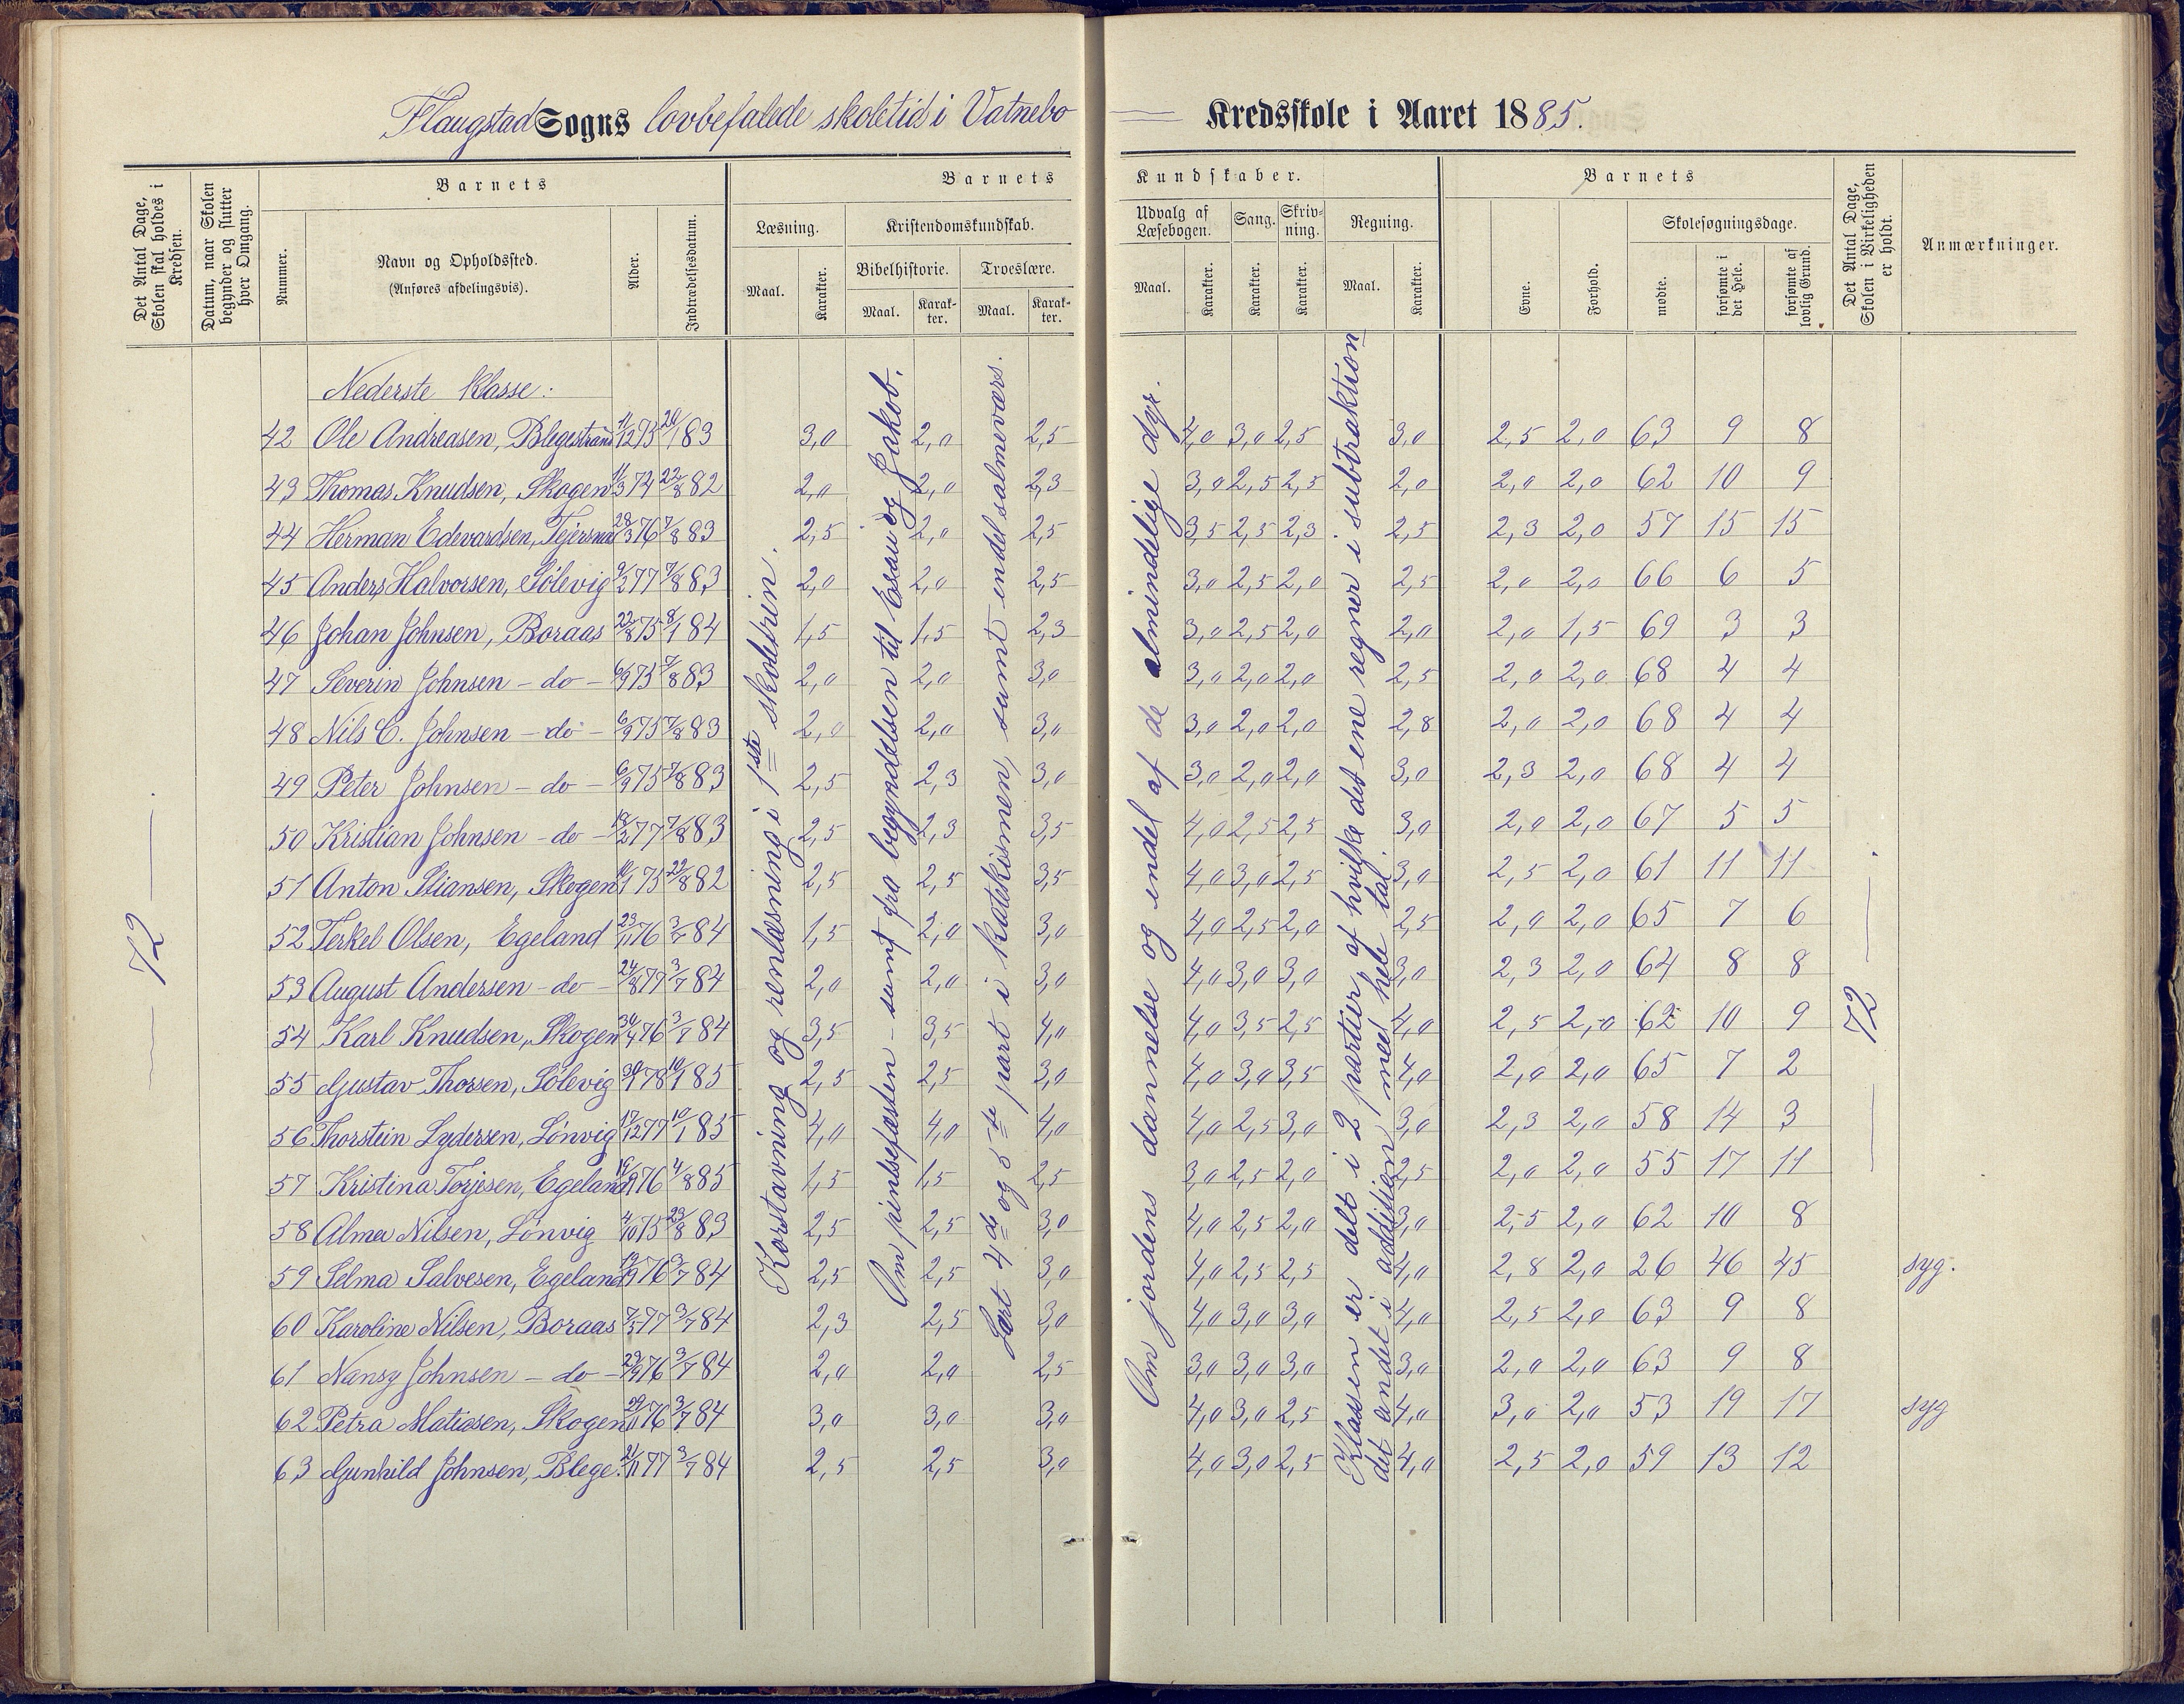 Flaugstad Sogns lovbefalede skoletid i Vatnebo
Kredsskole i Aaret 1885.
Det Antal Dage, Skolen skal holdes i Kredsen.
Datum, naar Skolen begynder og slutter hver Omgang.
Barnets
Nummer.
Navn og Opholdssted.
(Anføres afdelingsvis).
Alder.
Indtrædelsesdatum.
Barnets
Læsning.
Maal.
Karakter.
Kristendomskundskab.
Bibelhistorie.
Maal.
Karakter.
Troeslære.
Maal.
Karakter.
Kundskaber.
Udvalg af Læsebogen.
Maal.
Karakter.
Sang.
Karakter.
Skrivning.
Karakter.
Regning.
Maal.
Karakter.
Barnets
Evne.
Forhold.
Skolesøgningsdage.
mødte.
forsømte i det Hele.
forsømte af lovlig Grund.
Det Antal Dage, Skolen i Virkeligheden er holdt.
Anmærkninger.
— 72 —
Nederste Klasse:
42 Ole Andreasen, Blegestrand 11/12 75 20/1 83 3,0 2,0 2,5 4,0 3,0 2,5 3,0 2,5 2,0 63 9 8
43 Thomas Knudsen, Skogen 11/3 74 22/8 82 2,0 2,0 2,3 3,0 2,5 2,5 2,0 2,0 2,0 62 10 9
44 Herman Edevardsen, 28/3 76 7/8 83 2,5 2,0 2,5 3,5 2,5 2,3 2,5 2,3 2,0 57 15 15
45 Anders Halvorsen, Sølevig 9/2 77 7/8 83 2,0 2,0 2,5 3,0 2,5 2,0 2,5 2,0 2,0 66 6 5
46 Johan Johnsen, Boraas 22/8 75 8/1 84 1,5 1,5 2,3 3,0 2,5 2,0 2,0 2,0 1,5 69 3 3
47 Severin Johnsen - do - 6/9 75 7/8 83 2,0 2,0 3,0 3,0 2,0 2,0 2,5 2,0 2,0 68 4 4
48 Nils C. Johnsen - do - 6/9 75 7/8 83 2,0 2,0 3,0 3,0 2,0 2,0 2,8 2,0 2,0 68 4 4
49 Peter Johnsen - do - 6/9 75 7/8 83 2,5 2,3 3,0 3,0 2,0 2,0 3,0 2,3 2,0 68 4 4
50 Kristian Johnsen - do - 18/2 77 7/8 83 2,5 2,3 3,5 4,0 2,5 2,5 3,0 2,0 2,0 67 5 5
51 Anton Stiansen, Skogen 16/1 75 22/8 82 2,5 2,5 3,5 4,0 3,0 2,5 3,0 2,5 2,0 61 11 11
52 Terkel Olsen, Egeland 23/11 76 3/7 84 1,5 2,0 3,0 4,0 2,5 2,0 2,5 2,0 2,0 65 7 6
53 August Andersen - do - 24/8 77 3/7 84 2,0 2,0 3,0 4,0 3,0 3,0 3,0 2,3 2,0 64 8 8
54 Karl Knudsen, Skogen 30/4 76 3/7 84 3,5 3,5 4,0 4,0 3,5 2,5 4,0 2,5 2,0 62 10 9
55 Gustav Thorsen, Sølevig 78 10/1 85 2,5 2,5 3,0 4,0 3,0 3,5 4,0 2,0 2,0 65 7 2
56 Thorstein Lydersen, Lønvig 17/12 77 10/1 85 4,0 4,0 4,0 4,0 2,5 3,0 3,0 2,3 2,0 58 14 3
57 Kristina Torjesen, Egeland 76 4/8 85 1,5 1,5 2,5 3,0 2,5 2,0 2,5 2,0 2,0 55 17 11
58 Alma Nilsen, Lønvig 4/10 75 23/8 83 2,5 2,5 3,0 4,0 2,5 2,0 3,0 2,5 2,0 62 10 8
59 Selma Salvesen, Egeland 19/9 76 3/7 84 2,5 2,5 3,0 4,0 2,5 2,5 4,0 2,8 2,0 26 46 45 syg.
60 Karoline Nilsen, Boraas 7/5 77 3/7 84 2,3 2,5 3,0 4,0 3,0 3,0 4,0 2,5 2,0 63 9 8
61 Nansy Johnsen - do - 29/9 76 3/7 84 2,0 2,0 2,5 3,0 3,0 3,0 3,0 2,0 2,0 63 9 8
62 Petra Matiasen, Skogen 29/11 76 3/7 84 3,0 3,0 3,0 4,0 3,0 2,5 4,0 3,0 2,0 53 19 17 syg
63 Gunhild Johnsen, Blege. 21/11 77 3/7 84 2,5 2,5 3,0 4,0 3,0 2,5 4,0 2,5 2,0 59 13 12
Korstavning og renlæsning i 1ste skoletrin.
Om pinsefesten - samt fra begyndelsen til Esau og Jakob.
Lært 4de og 5te part i katekismen, samt endel salmevers.
Om jordens dannelse og endel af de almindelige dyr.
Klassen er delt i 2 partier, af hvilke det ene regner i subtraktion
det andet i addition med hele tal.
— 72 —